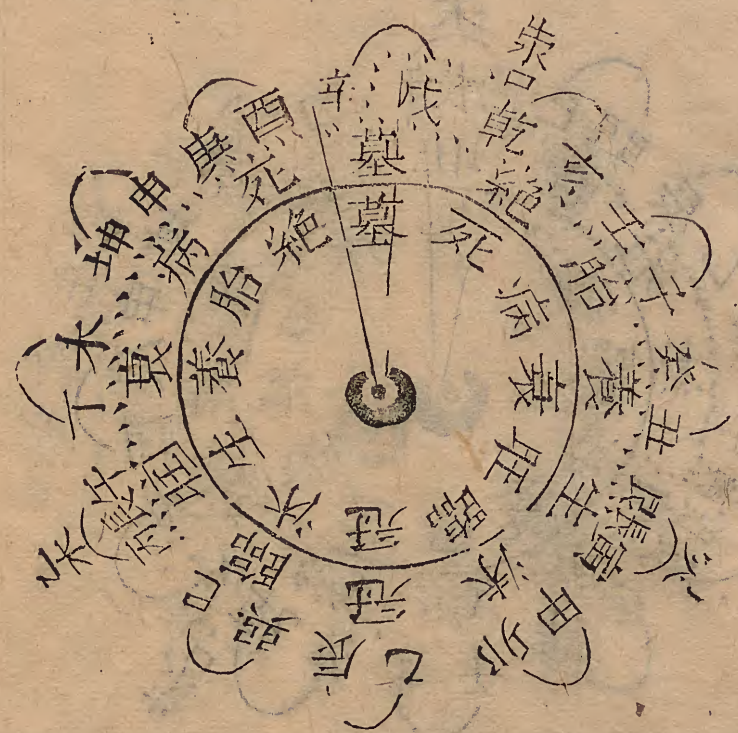 辛戌
乾亥
壬子
癸丑
艮寅
甲卯
乙辰
巽巳
丙午
丁未
坤申
庚酉
墓
絶
胎
養
生
沐
冠
臨
旺
衰
病
死
墓
死
病
衰
旺
臨
冠
沐
生
養
胎
絶